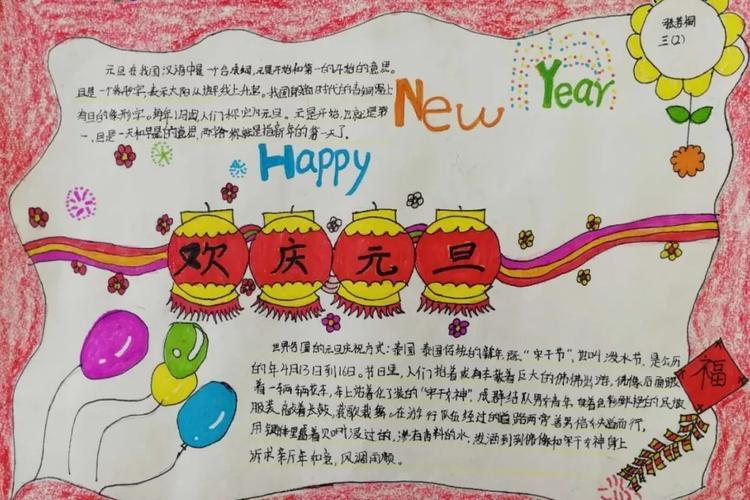 元旦在我国汉语中是一个合成词,元是开始和第一的开始的意思。
旦是一个象形字,表示太阳从地平线上升起。我国
有日的象形字。每年1月1日人们称为元旦。元是开始,
一,旦是一天和早晨的意思,两字合称就是指新年的第一天了。
New Year
Happy
张
三(2)
欢庆元旦
世界各国的元旦庆祝方式:泰国 泰国传统的新年 "宋干节",也叫泼水节,是公历
的年4月13日到16日。节日里,人们抬着或用车载着巨大的佛像出游,佛像后面跟
着一辆辆花车,车上站着化了装的"宋干女神",成群结队男女青年,
服装,敲着长鼓,载歌载舞。在游行队伍经过的道路两旁善男信女
用 盛着贝叶浸过的,滲有香料的水,泼洒到到佛像和宋干女神身上
诉求来历年和意,风调雨顺。
福